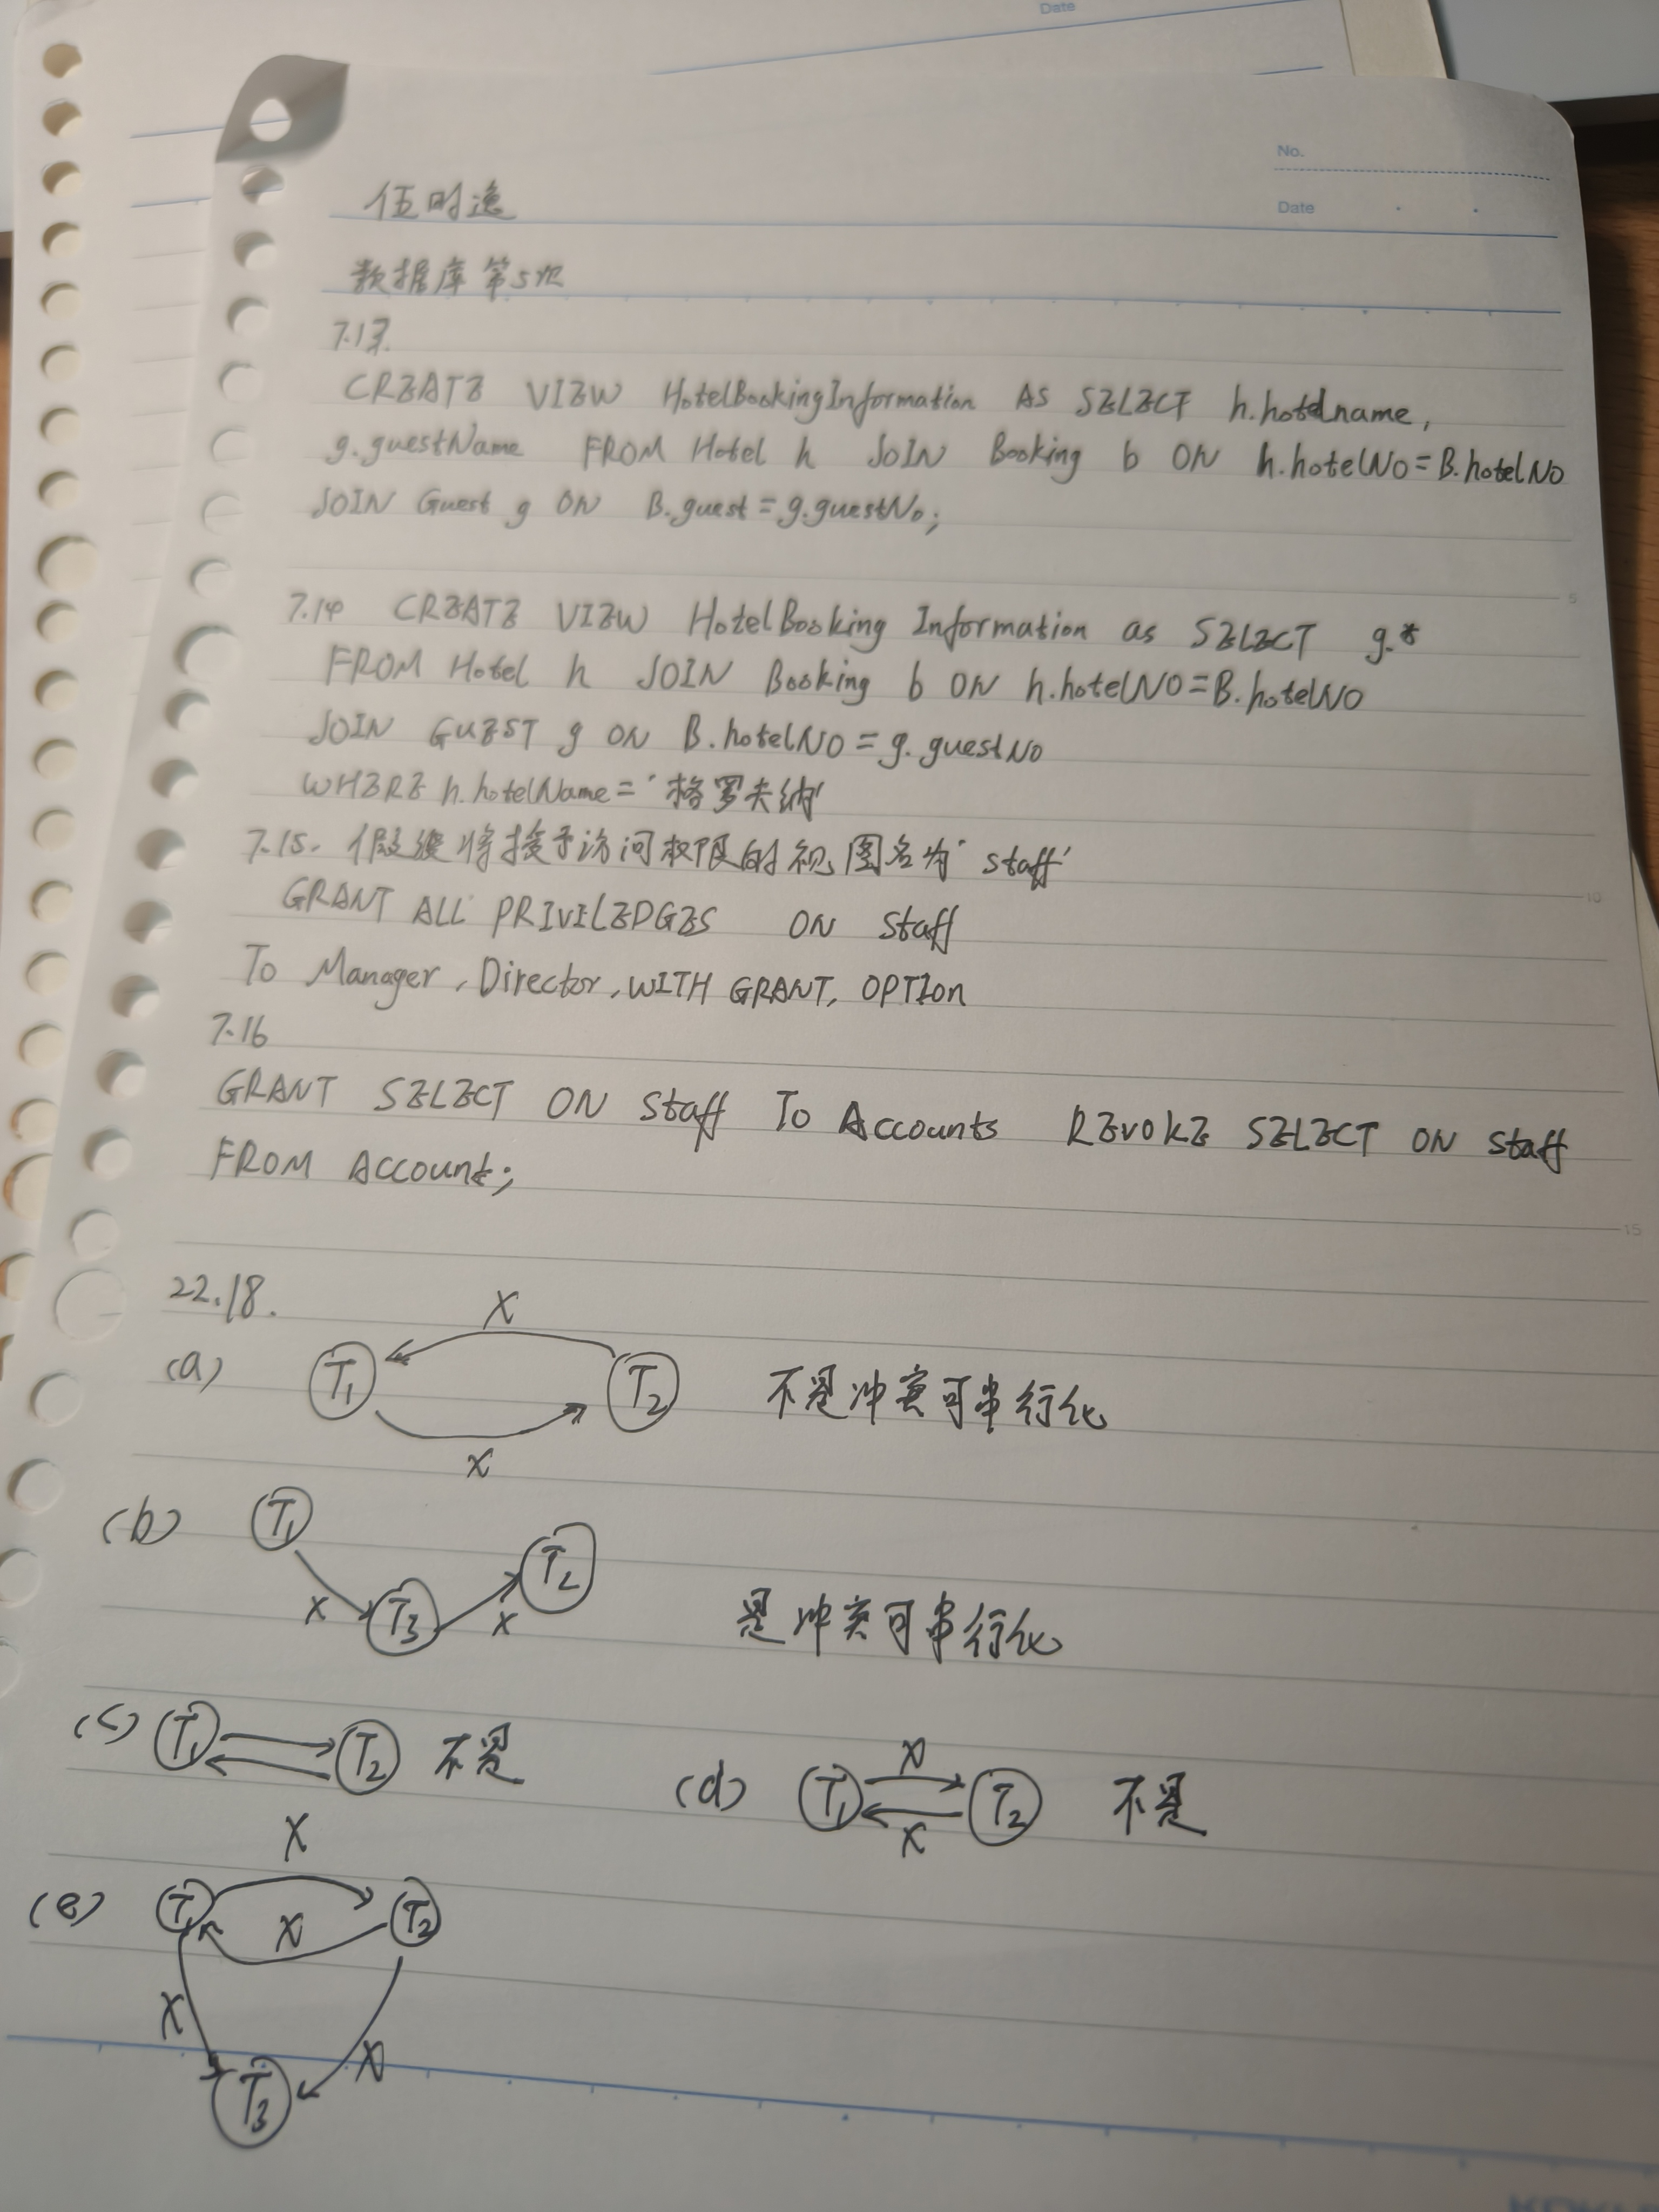 Date
No.
Date
伍时逸
数据库 第5次
7.13.
CREATE VIEW HotelBookingInformation AS SELECT h.hotelname,
g.guestName FROM Hotel h JOIN Booking b ON h.hotelNo=B.hotelNo
JOIN Guest g ON B.guest=g.guestNo;
5
7.14 CREATE VIEW HotelBooking Information as SELECT g.*
FROM Hotel h JOIN Booking b ON h.hotelNO=B.hotelNO
JOIN GUEST g ON B.hotelNO=g.guestNO
WHERE h.hotelName='格罗夫纳'
7.15. 假设将授予访问权限的视图名为'staff'
10
GRANT ALL PRIVILEDGES ON staff
To Manager,Director,WITH GRANT, OPTION
7.16
GRANT SELECT ON staff To Accounts REVOKE SELECT ON staff
FROM Account;
15
22.18.
(a) T1 X T2 X 不是冲突可串行化
(b) T1 X T3 X T2 是冲突可串行化
(c) T1 T2 不是 (d) T1 X T2 X 不是
(e) T1 X T2 X
X T3 X